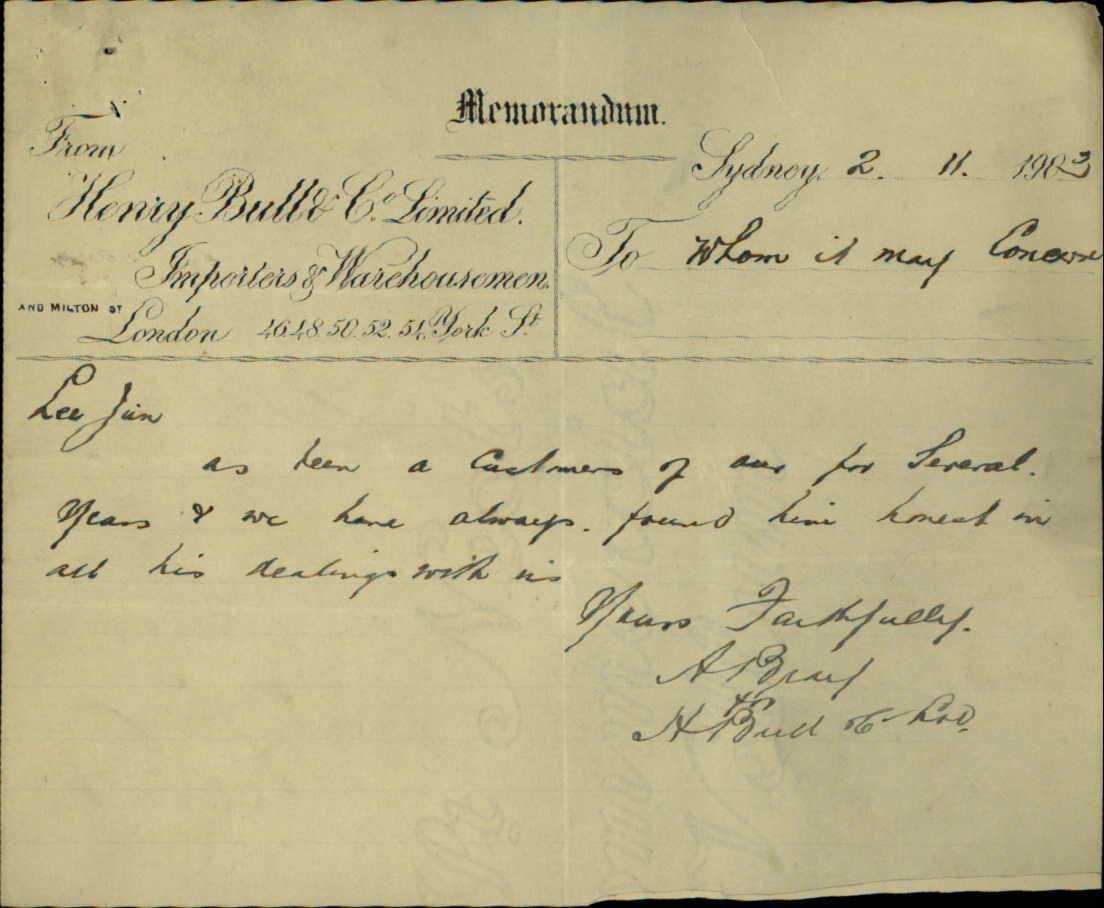 Memorandum.
From
Sydney, 2. 11. 1903
Henry Bull & Co. Limited.
To Whom it may Concern
Importers & Warehousemen.
AND MILTON ST
London 46.48.50.52.54. York St.
Lee Jun
as been a Customers of our for Several.
Years & we have always. found him honest in
all his dealings with us
Yours Faithfully.
A Bray
H Bull & Co Ltd.